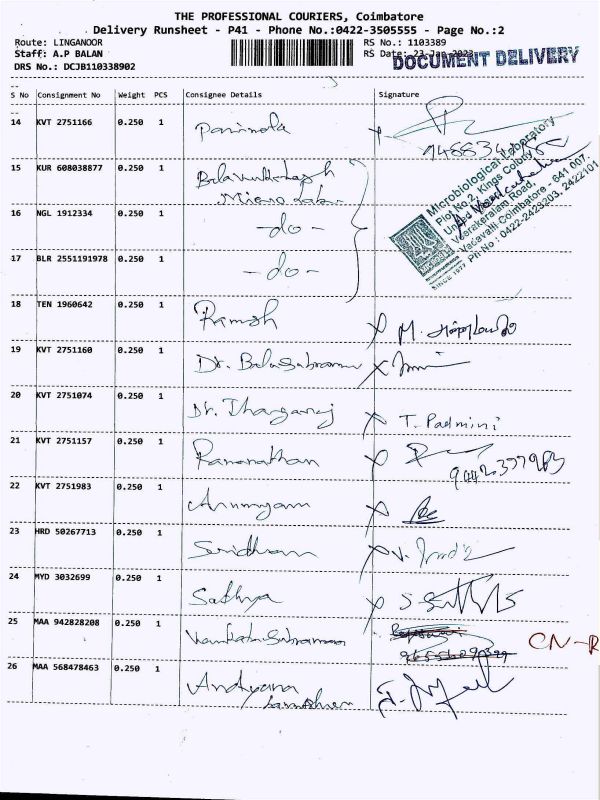 THE PROFESSIONAL COURIERS, Coimbatore
Delivery Runsheet - P41 - Phone No.:0422-3505555 - Page No.:2
Route: LINGANOOR
RS No.: 1103389
Staff: A.P BALAN
RS Date: 23-Jan-2023
DOCUMENT DELIVERY
DRS No.: DCJB110338902
S No Consignment No Weight PCS Consignee Details Signature
14 KVT 2751166 0.250 1
15 KUR 608038877 0.250 1
Microbiological Laboratory
Plot No.2, Kings Colony
Veerakeralam Road,
Vadavalli Coimbatore - 641 007.
Ph-No : 0422-2423203, 2422101
SINCE 1977
16 NGL 1912334 0.250 1 -do-
17 BLR 2551191978 0.250 1 -do-
18 TEN 1960642 0.250 1 Ramesh
19 KVT 2751160 0.250 1 Dr. Balasubramani
20 KVT 2751074 0.250 1 Dr. Thangaraj T. Padmini
21 KVT 2751157 0.250 1 Ramanathan
22 KVT 2751983 0.250 1 Arumugam
23 HRD 50267713 0.250 1 Sridharan
24 MYD 3032699 0.250 1 Sathya
25 MAA 942828208 0.250 1 Venkatasubramanian CN-R
26 MAA 568478463 0.250 1